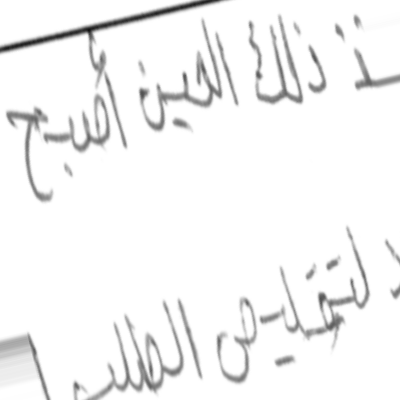 ذلك الحين أصبح
لتقليص الطلب